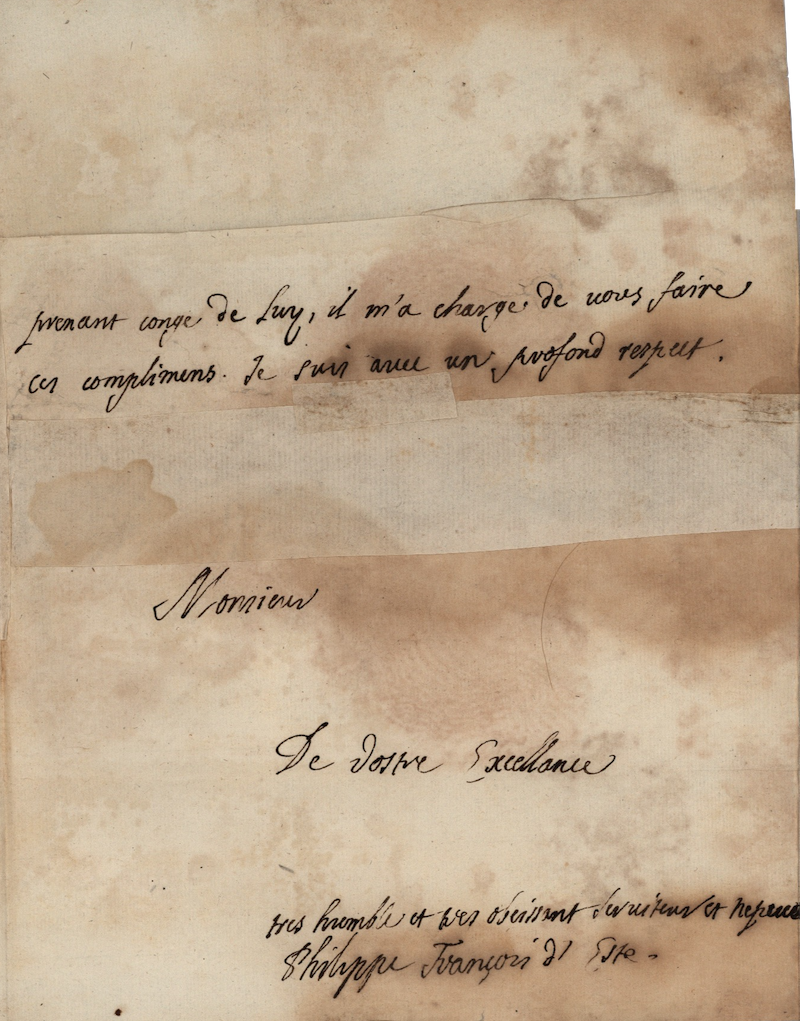 prenant conge de Luy, il m'a charge de vous faire
ces complimens. Je suis avec un profond respect.
Monsieur
De Vostre Excellance
tres humble et tres obeissant serviteur et nepveu
Philippe François d'Este.